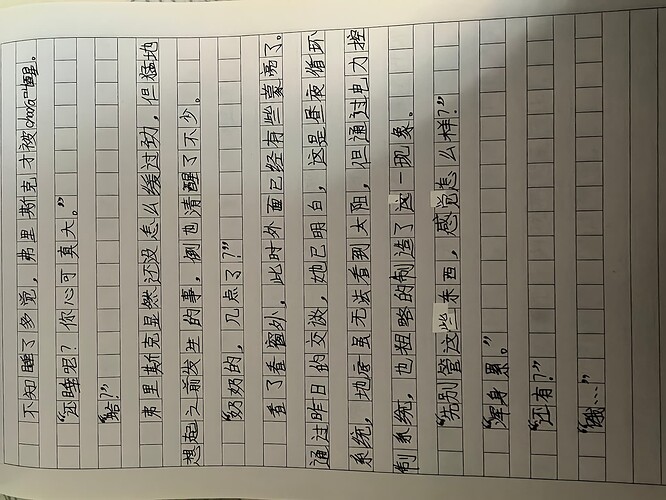 不知睡了多觉，弗里斯克才被Chara叫醒。
“还睡呢？你心可真大。”
“啥？”
弗里斯克显然还没怎么缓过劲，但猛地
想起之前发生的事，倒也清醒了不少。
“奶奶的，几点了？”
看了看窗外，此时外面已经有些蒙亮了。
通过昨日的交谈，她已明白，这是昼夜循环
系统，地底虽无法看到太阳，但通过电力控
制系统，也粗略的制造了这一现象。
“先别管这些东西，感觉怎么样？”
“浑身累。”
“还有？”
“饿…”